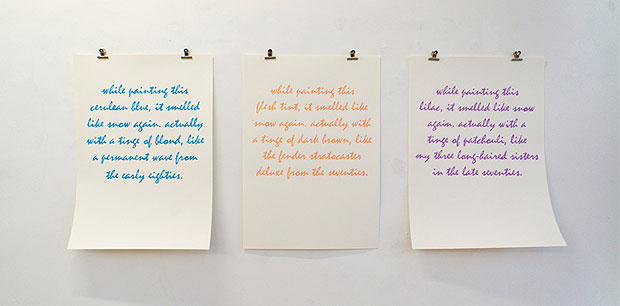 while painting this
cerulean blue, it smelled
like snow again. actually
with a tinge of blond, like
a permanent wave from
the early eighties.
while painting this
flesh tint, it smelled like
snow again. actually with
a tinge of dark brown, like
the fender stratocaster
deluxe from the seventies.
while painting this
lilac, it smelled like snow
again. actually with a
tinge of patchouli, like
my three long-haired sisters
in the late seventies.